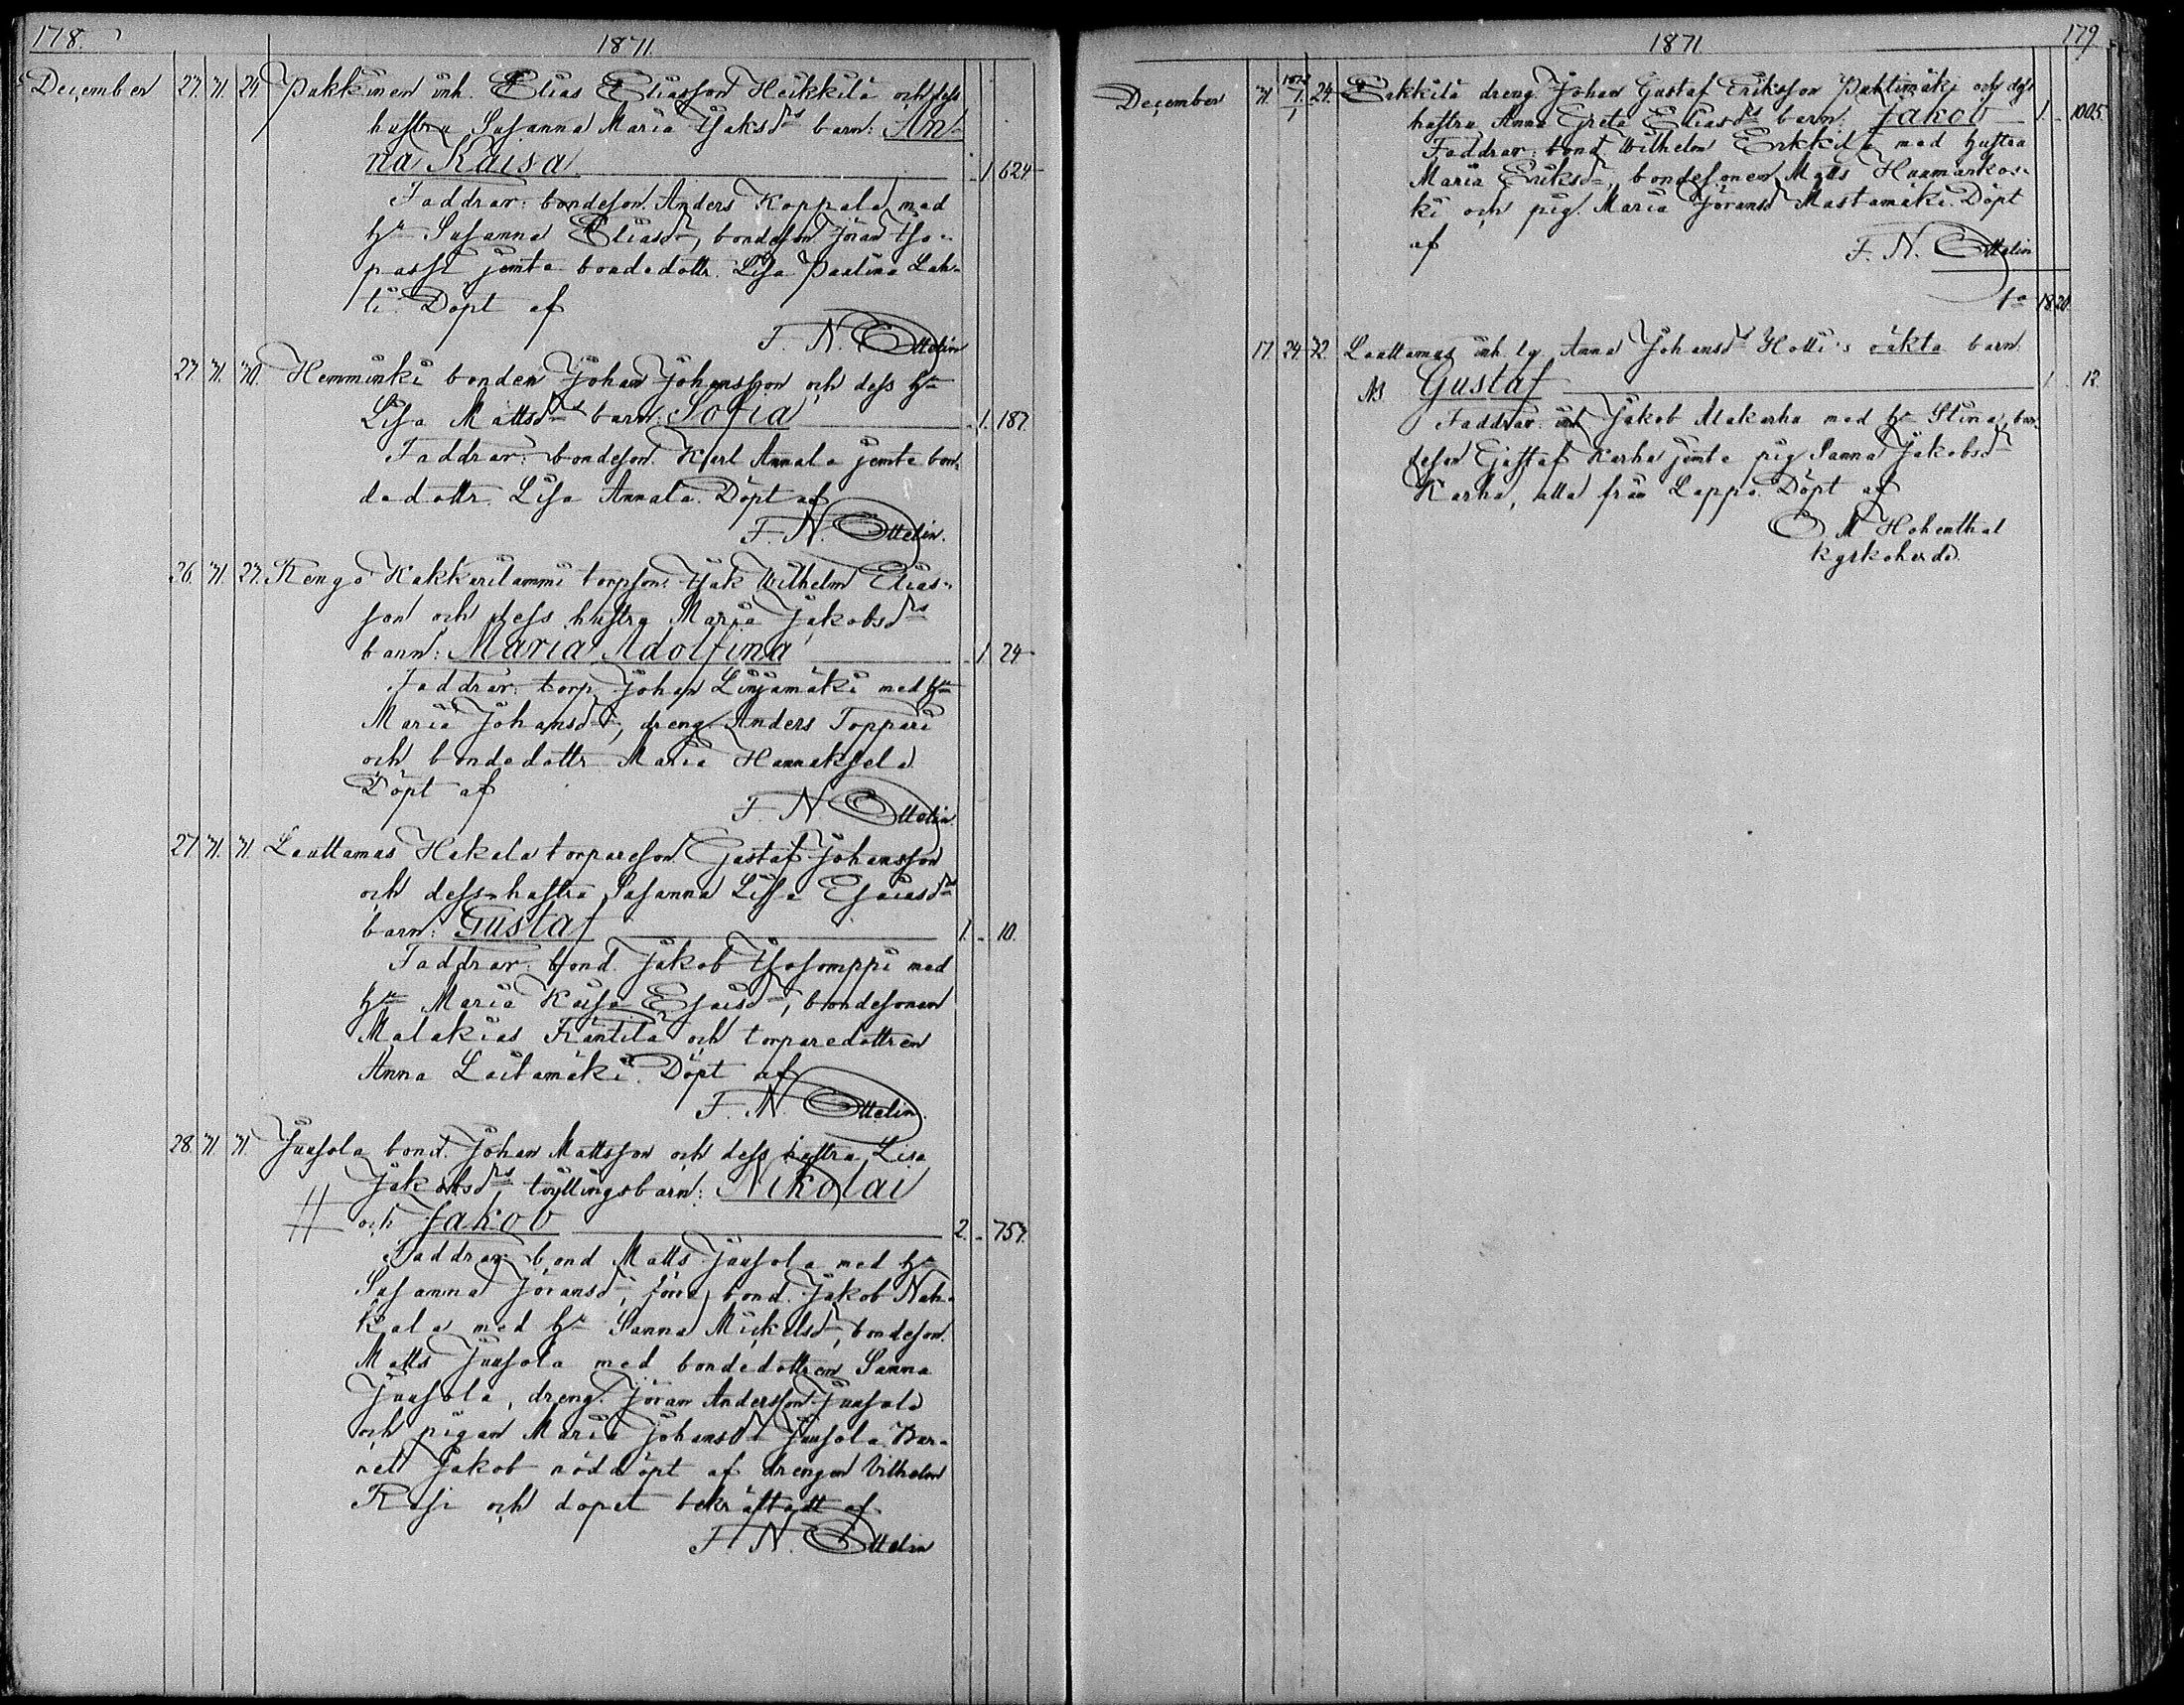 178.
1871.
December 27. 31. 24. Pakkinen inh. Elias Eliasson Heikkilä och dess
hustru Susanna Maria Isaksdrs barn: An-
na Kaisa 1 624
Faddrar: bondeson. Anders Koppala med
hu Susanna Eliasdr, bondeson Jöran Iso-
passi jemte bondedottr. Lisa Paulina Lah-
ti. Döpt af
F. N. Ottelin
27. 31. 30. Hemminki bonden Johan Johansson och dess hu
Lisa Mattsdrs barn: Sofia 1. 187.
Faddrar: bondeson. Karl Annala jemte bon-
dedottr. Lisa Annala. Döpt af
F. N. Ottelin.
26. 31. 27. Rengo Kakkurilammi torpson. Isak Wilhelm Elias-
son och dess hustru Maria Jakobsdrs
barn: Maria Adolfina 1 24
Faddrar: torp. Johan Linjamäki med hu
Maria Johansdr, dreng. Anders Toppari
och bondedottr. Maria Hannuksela
Döpt af
F. N. Ottelin.
27 31. 31. Lauttamus Hakala torpareson. Gustaf Johansson
och dess hustru Susanna Lisa Esaiasdrs
barn: Gustaf 1. 10.
Faddrar: bond. Jakob Isosomppi med
hu Maria Kaisa Esaisdr, bondesonen
Malakias Fräntilä och torparedottren
Anna Laitamäki. Döpt af
F. N. Ottelin.
28. 31 31. Juusola bond. Johan Mattsson och dess hustru Lisa
Jakobsdrs tvillingsbarn: Nikolai
och Jakob 2. 757.
Faddrar: bond Matts Juusola med hu
Susanna Jöransdr, förra bond. Jakob Nah-
kala med hu Sanna Mickelsdr, bondeson.
Matts Juusola med bondedottren Sanna
Juusola, dreng. Jöran Andersson Juusola
och pigan Maria Johansdr Juusola. Bar-
net Jakob nöddöpt af drengen Vilhelm
Rasi och dopet bekräftadt af
F. N. Ottelin
1871
179
December 31. 1872 1. 1 24. Erkkilä dreng. Johan Gustaf Eriksson Pahtimäki och dess
hustru Anna Greta Eliasdrs barn: Jakob 1. 1005.
Faddrar: bond Wilhelm Erkkilä med hustru
Maria Eriksdr, bondesonen Matts Huumarkos-
ki och pig. Maria Jöransd Mastamäki. Döpt
af
F. N. Ottelin
1820
17. 24. 32. Lauttamus inh. Anna Johansdrs Hotti's oäkta barn:
NB. Gustaf 1. 12.
Faddrar: inh Jakob Alakarha med hu Stina, bon-
deson Gustaf Karha jemte pig Sanna Jakobsdr
Karha, alla från Lappo. Döpt af
O. M Hohenthal
kyrkoherde.